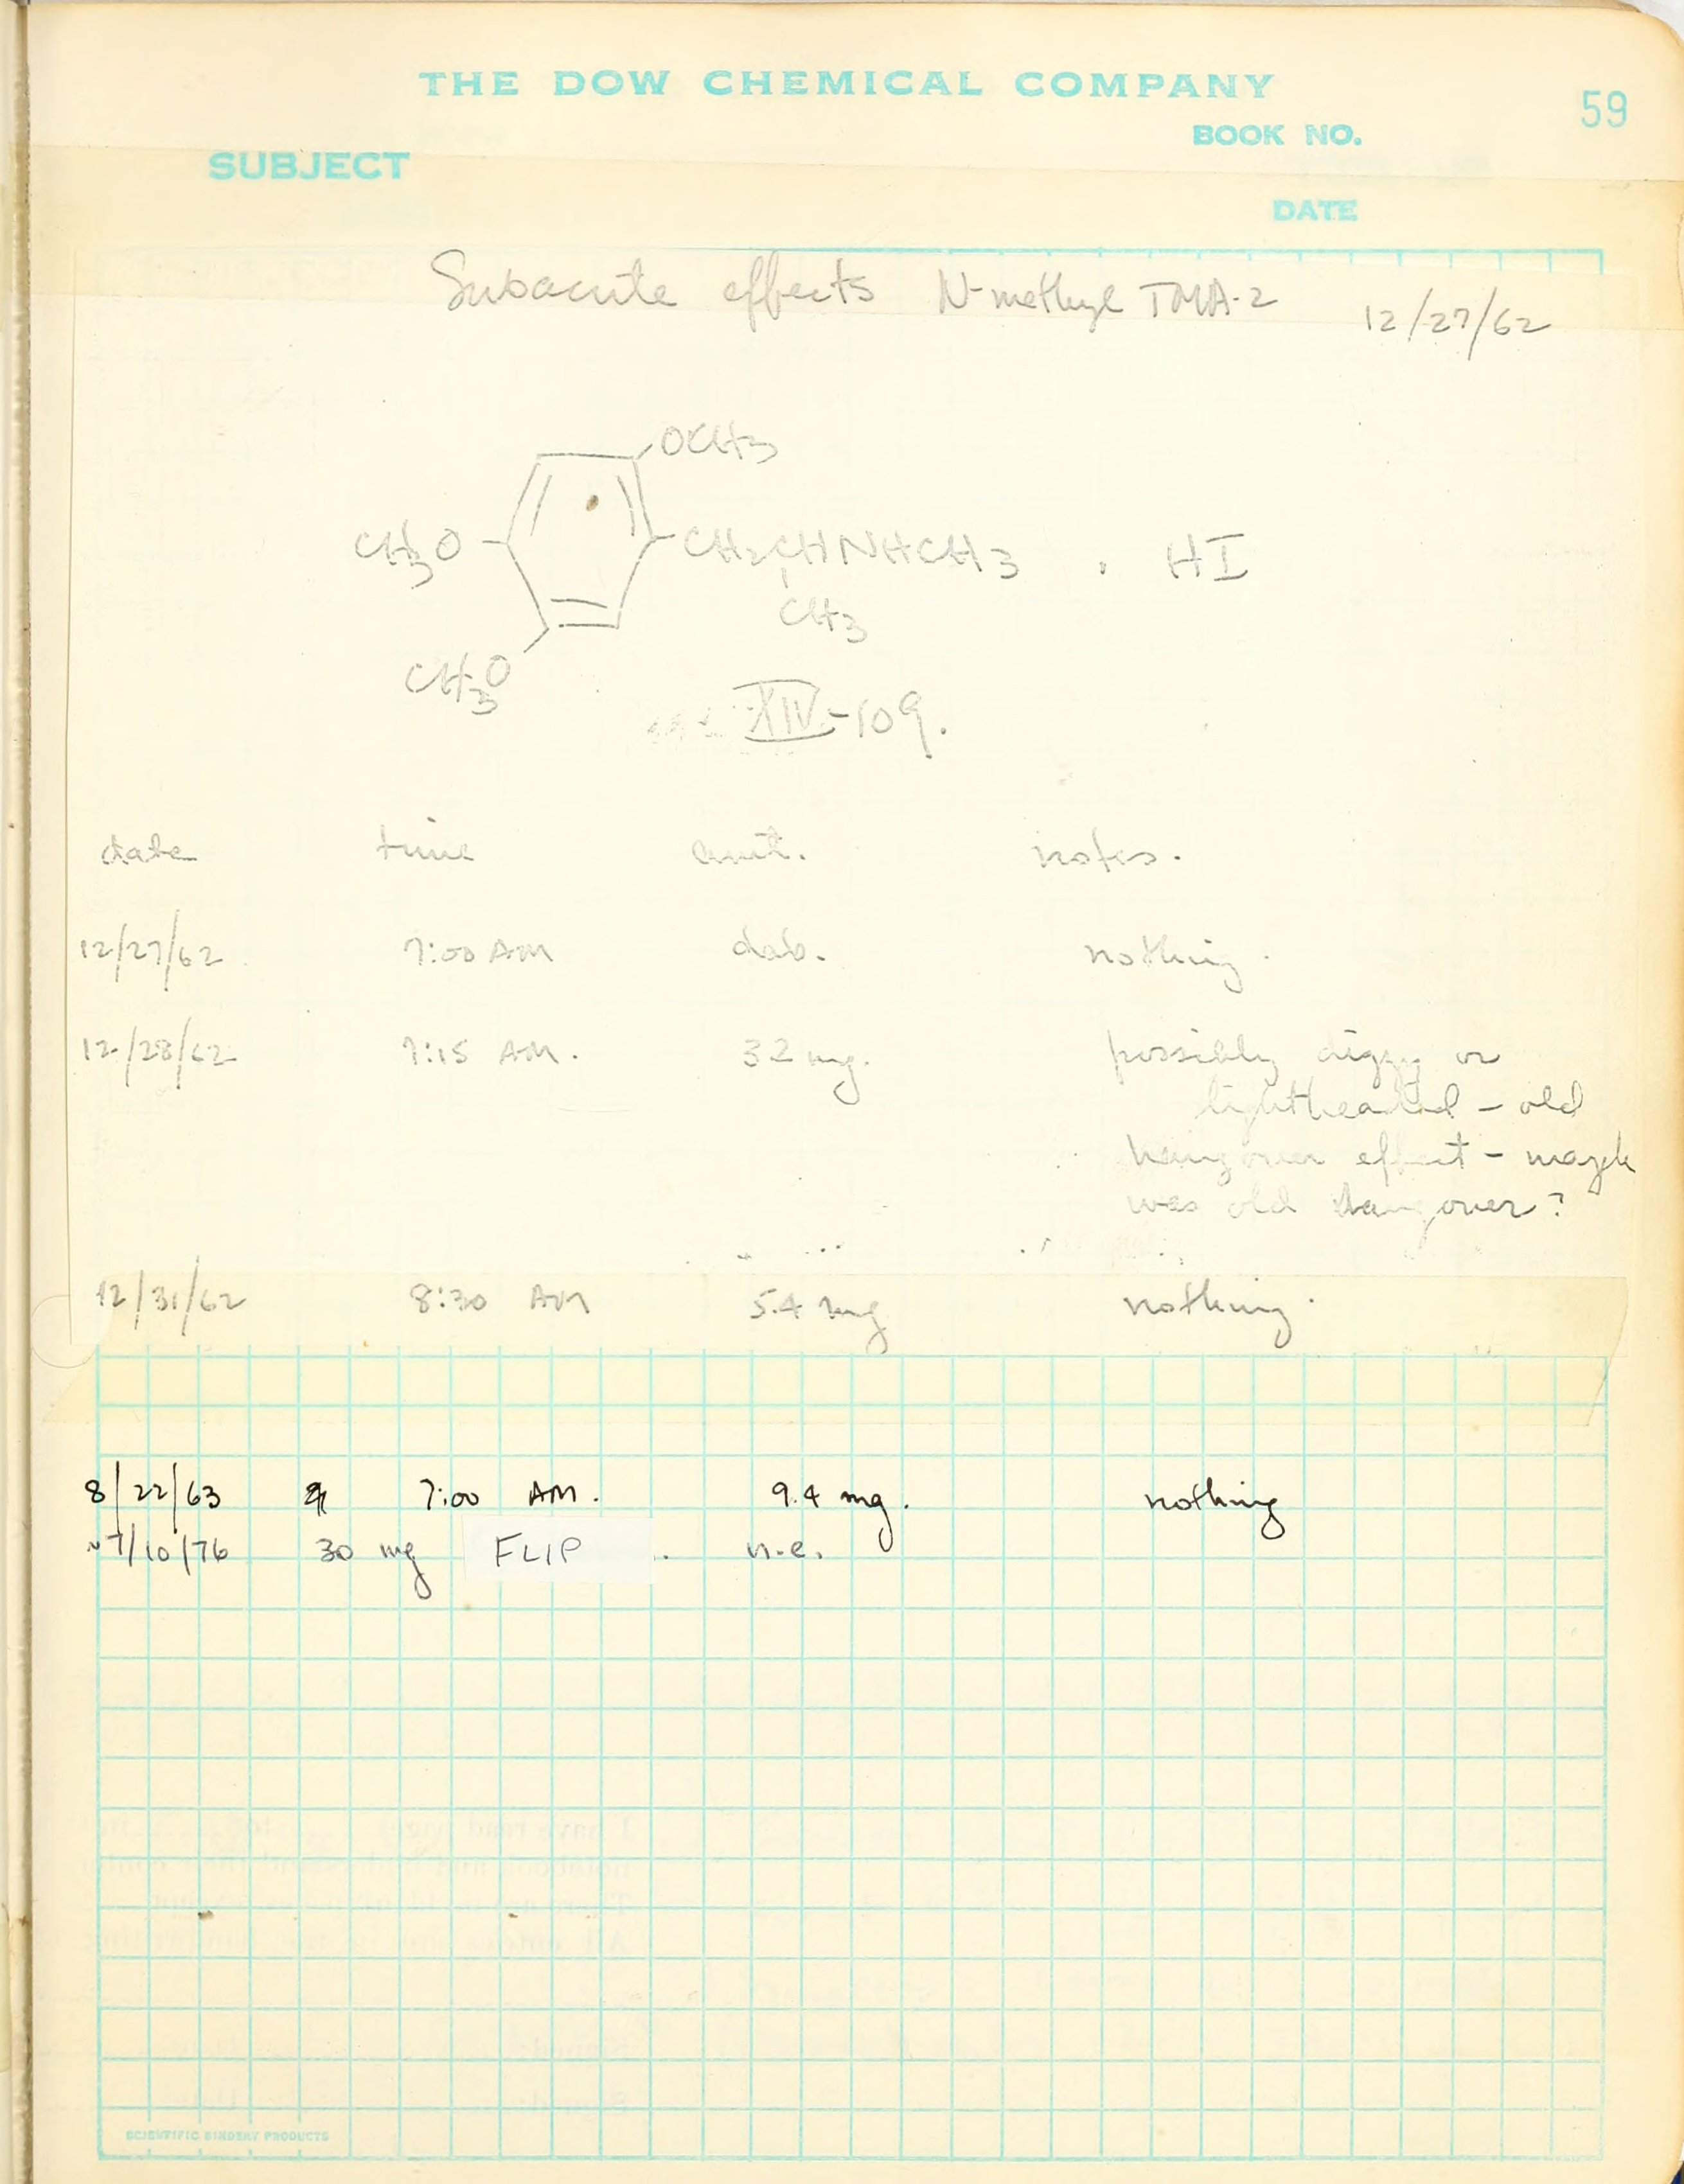 THE DOW CHEMICAL COMPANY
59
BOOK NO.
SUBJECT
DATE
Subacute effects N-methyl TMA-2 12/27/62
OCH3
CH3O CH2CHNHCH3 . HI
CH3
CH3O
XIV-109.
date time amt. notes.
12/27/62 7:00 AM dab. nothing.
12/28/62 7:15 AM. 32 mg. possibly dizzy or
lightheaded - old
hangover effect - maybe
was old hangover?
12/31/62 8:30 AM 5.4 mg nothing.
8/22/63 7:00 AM. 9.4 mg. nothing
~7/10/76 30 mg FLIP . n.e.
I have read pages
SCIENTIFIC BINDERY PRODUCTS